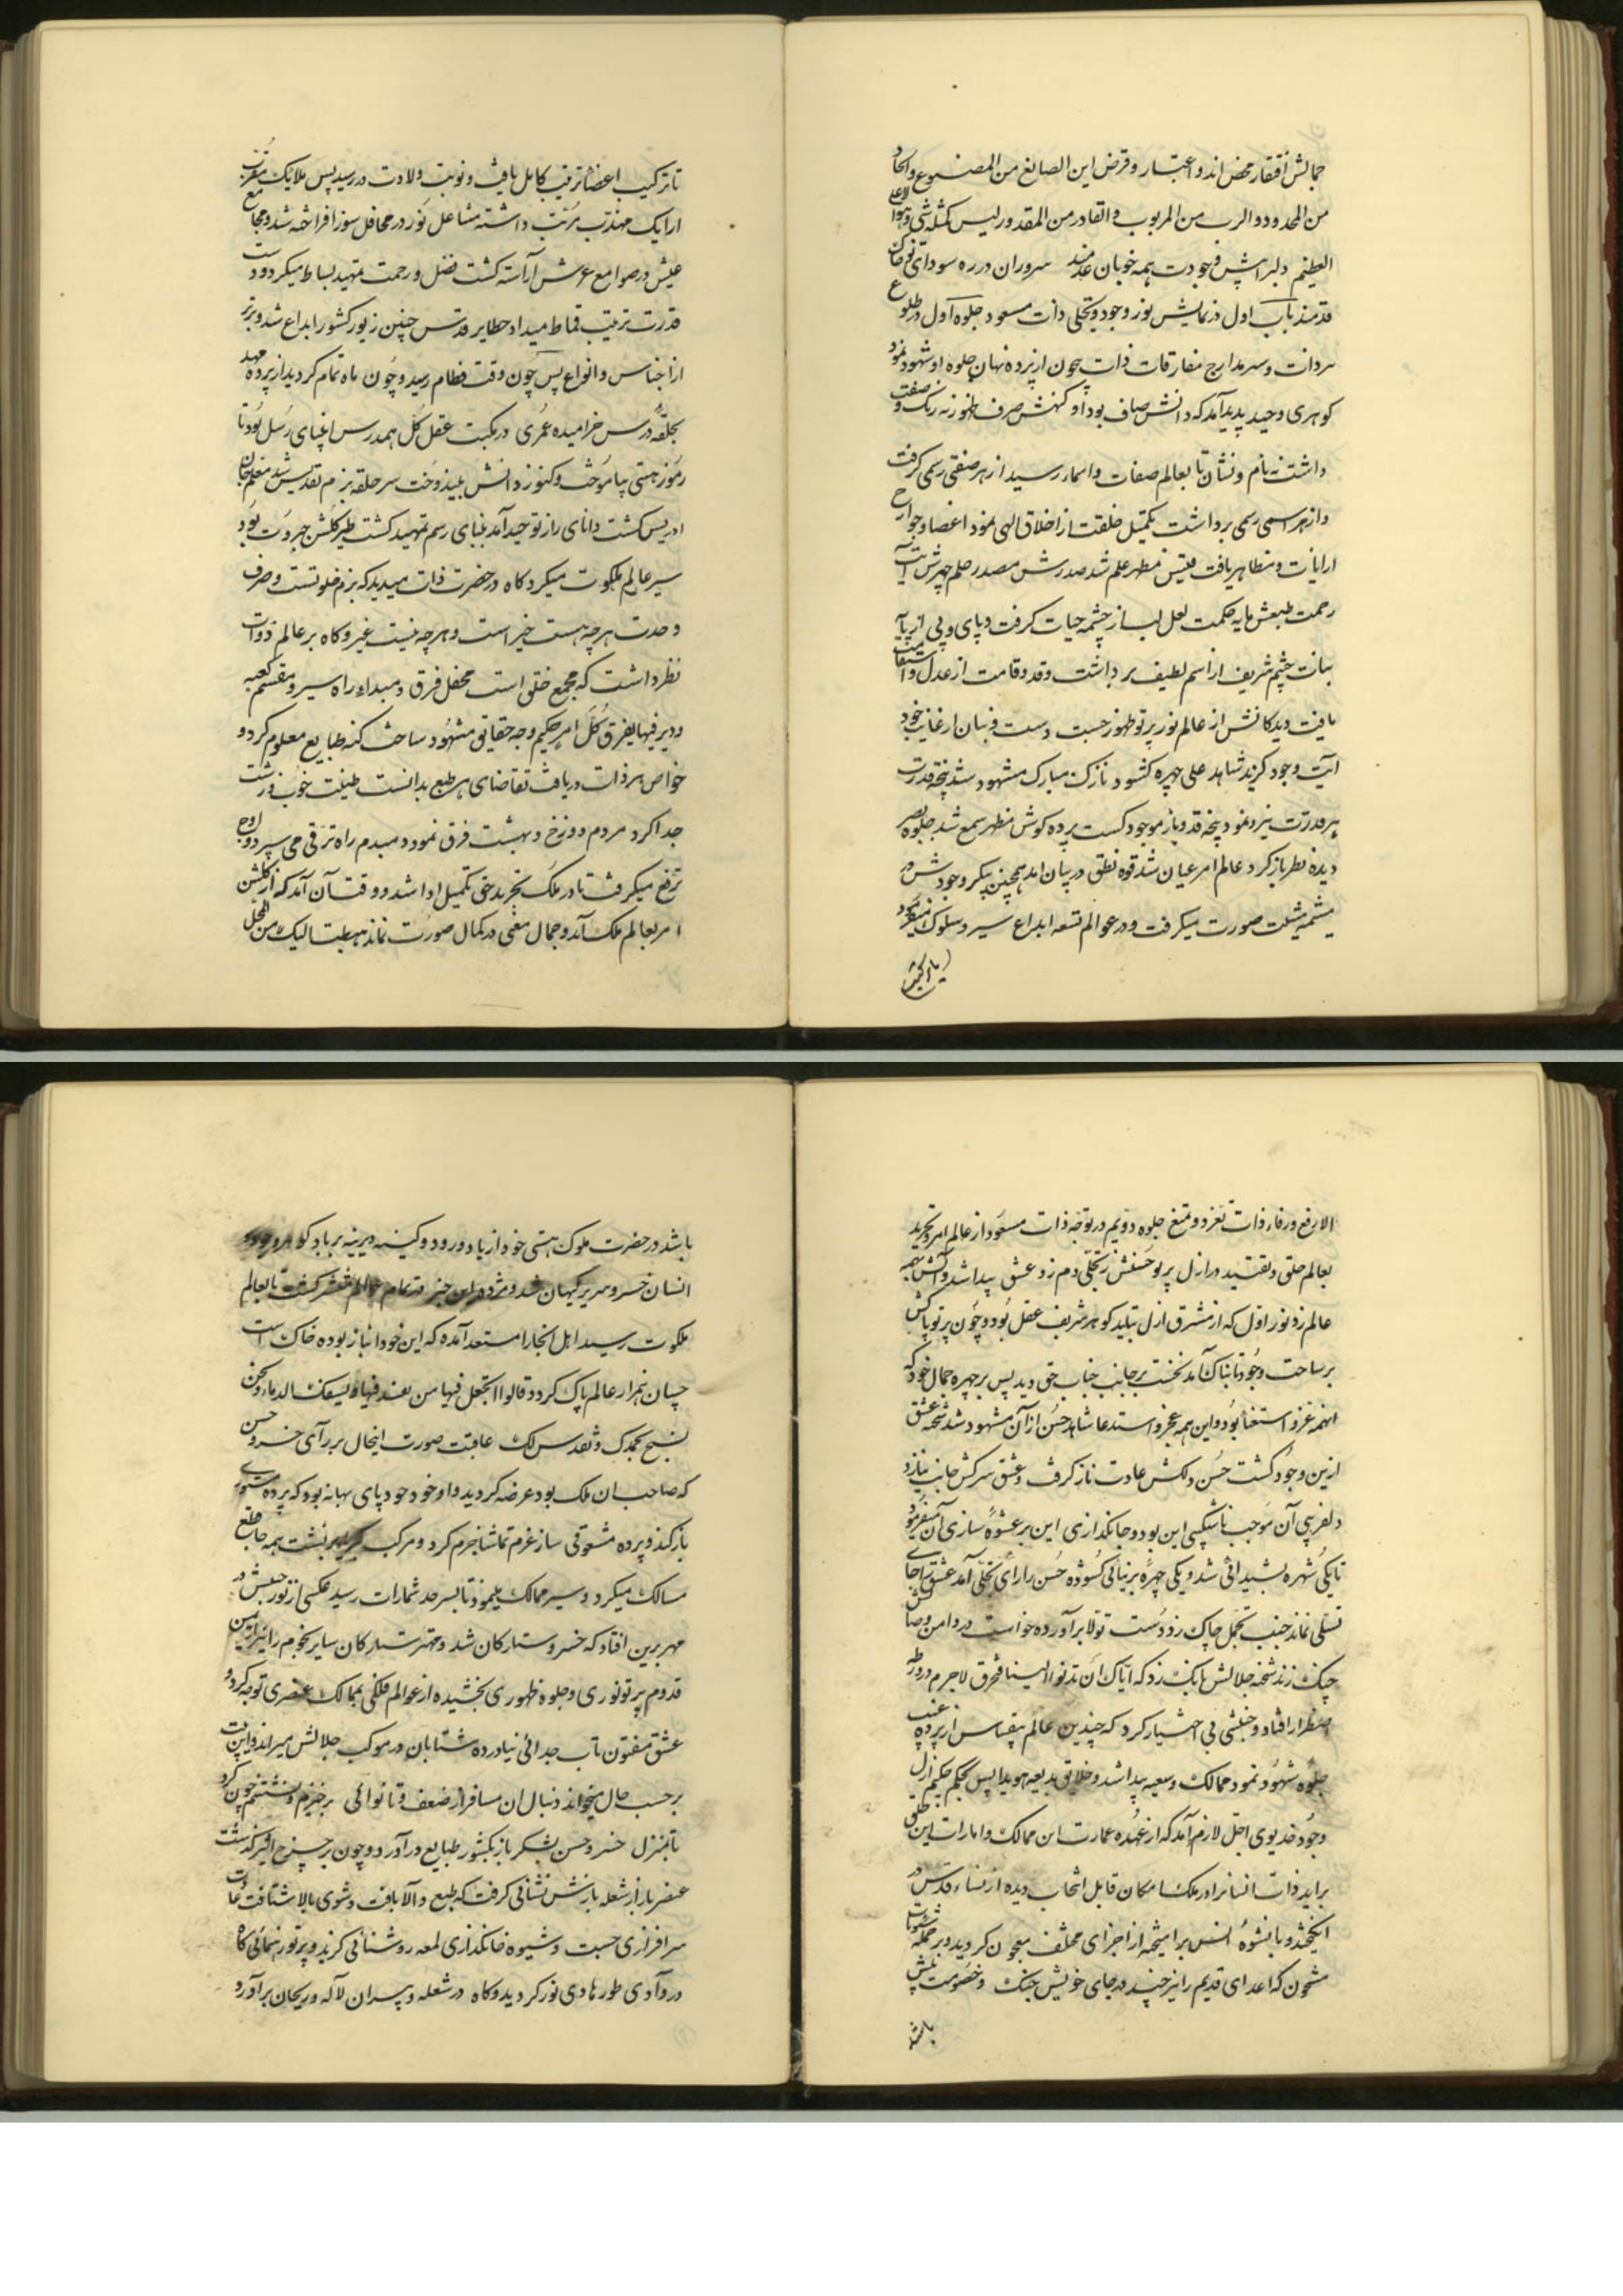 جمالش افتقار محض اند و اعتبار و فرض این الصانع من المصنوع و الحاد
من المحدود و الرب من المربوب و القادر من المقدور لیس کمثله شی و هو
العظیم دلبرا پیش وجودت همه خوبان عدمند سروران در ره سودای تو خاک
قدمند باب اول در نمایش نور وجود و تجلی ذات مسعود جلوه اول در طلوع
سر ذات و سر مدارج مفارقات ذات چون از پرده نهان جلوه او شهود نمود
کوهری وحید پدید آمد که ذاتش صاف بود او کنهش صرف هنوز نه رنک و صفت
داشت نه نام و نشان تا بعالم صفات و اسماء رسید از هر صفتی رسمی کرفت
و از هر اسمی رسمی برداشت تکمیل خلقت از اخلاق الهی نمود اعضا و جوارح
از ایات و مظاهر یافت قلبش مظهر علم شد صدرش مصدر حلم چهرش آیت
رحمت طبعش مایه حکمت لعل لب از چشمه حیات کرفت و پای و پی از پایه
ثبات چشم شریف از اسم لطیف برداشت و قد و قامت از عدل و استقامت
یافت دیدکانش از عالم نور پرتو ظهور جست دست و بنان از غایت جود
آیت وجود کزید شاهد علی چهره کشود نازک مبارک مشهود شد پنجه قدرت
دیده نظر باز کرد عالم امر عیان شد قوه نطق در بیان امد همچنین پیکر وجودش در
مشیمه مشیت صورت میکرفت و در عوالم تسعه ابداع سیر و سلوک میکرد
تا ترکیب
تا ترکیب اعضا ترتیب کامل یافت و نوبت ولادت در رسید پس ملایک مقرب
ارایک مهذب مرتب داشته مشاعل نور در محافل سوز افراخته شد و مجامع
عیش در صوامع عرش آراسته کشت فضل و رحمت تمهید بساط میکرد و دست
قدرت ترتیب قماط میداد حظایر قدس چنین زیور کشور ابداع شد و برتر
از اجناس و انواع پس چون وقت فطام رسید و چون ماه تمام کردید از پرده مهد
بحلقه درس خرامیده عمری در مکتب عقل کل همدرس انبیای رسل بود تا
رموز هستی بیاموخت و کنوز دانش بیندوخت سر حلقه بزم تقدیس شد معلم خان
ادریس کشت دانای راز توحید آمد بنای رسم تمهید کشت طیر کلشن جبروت بود
سیر عالم ملکوت میکرد کاه در حضرت ذات میدید که بزم خلوتست و صرف
وحدت هرچه هست خیر است و هرچه نیست غیر و کاه بر عالم ذوات
نظر داشت که مجمع خلق است محفل فرق و مبداء راه سیر و مقسم کعبه
و دیر فیها یفرق کل امر حکیم وجه حقایق مشهود ساخت کنه طبایع معلوم کرد و
خواص هر ذات دریافت تقاضای هر طبع بدانست طینت خوب و زشت
جدا کرد مردم دوزخ و بهشت فرق نمود دمبدم راه ترقی می سپرد و اوج
ترفع میکرفت تا در ملک تجرید حق تکمیل ادا شد و وقت آن آمد که از کلشن
امر بعالم ملک آید و جمال معنی در کمال صورت نماند هبطت الیک من المحل
الارفع ورقاء ذات تعزز و تمنع جلوه دویم در توجه ذات مسعود از عالم امر و تجرید
بعالم خلق و تقیید در ازل پرتو حسنش ز تجلی دم زد عشق پیدا شد و آتش بهمه
عالم زد نور اول که از مشرق ازل بتابید کوهر شریف عقل بود و چون پرتو پاکش
بر ساحت وجود تابناک آمد نخست بر جانب جناب حق دید پس بر چهره جمال خود که
انهمه عز و استغنا بود و این همه عجز و استدعا شاهد حسن از آن مشهود شد شحنه عشق
ازین وجود کشت حسن دلکش عادت ناز کرفت و عشق سرکش جانب نیاز و
دلفریبی آن موجب ناشکیبی این بود و جانکدازی این بر عشوه سازی آن میفزود
تا یکی شهره بشیدائی شد و یکی چهره بزیبائی کشوده حسن را رأی تجلی آمد عشق را جای
تسلی نماند جیب تحمل چاک زد دست تولا برآورده خواست در دامن وصالش
چنک زند شحنه جلالش بانک زد که ایاک ان تدنو الینا فتحرق لاجرم در ورطه
اضطرار افتاد و جنبشی بی اختیار کرد که چندین عالم بیقیاس از پرده غیب
جلوه شهود نمود ممالک وسیعه پیدا شد و خلایق بدیعه هویدا پس بحکم حکیم ازل
وجود خدیوی اجل لازم آمد که از عهده عمارت این ممالک و امارات این خلق
براید ذات انسانرا در ملک امکان قابل انتخاب دیده از نساء قدس در
انکیخته و با نشوه انس برامیخته از اجزای مختلف معجون کردید و بر جمله شئونات
مشحون که اعدای قدیم را نیز چند در جای خویش جنک و خصومت پیش
باشد
باشد در حضرت ملوک هستی خود از یاد و رود و کینه دیرینه بر باد کوهر وجود
انسان خسرو سریر کیهان شد و مژده این خبر در تمام عالم منتشر کشت تا بعالم
ملکوت رسید اهل انجا را مستعد آمده که این خود انباز بوده خاک است
چسان هنر از عالم پاک کردد قالوا اتجعل فیها من یفسد فیها و یسفک الدماء و نحن
نسبح بحمدک و نقدس لک عاقبت صورت اینحال بر رآی خسرو حسن
که صاحب ان ملک بود عرضه کردید و او خود جویای بهانه بود که پرده مستوری
باز کند و پرده معشوقی ساز عزم تماشا جزم کرد و بر مرکب بنشست همه جا قطع
مسالک میکرد و سیر ممالک مینمود تا بسر حد شمارات رسید عکسی از نور جبینش در
مهر برین افتاد که خسرو ستارکان شد و مهتر ستارکان سایر نجوم را نیز از یمن
قدوم پرتو نوری و جلوه ظهوری بخشیده از عوالم فلکی بممالک عنصری توجه کرد و
عشق مفتون تاب جدائی نیاورده شتابان در موکب جلالش میراند و این بیت
بر حسب حال میخواند دنبال ان مسافر از ضعف و ناتوائی برخیزم و نشینم چون کرد
تا بمنزل خسرو حسن لشکر باز بکشور طبایع درآورد و چون بر چرخ اثیر کذشت
عنصر نار از شعله نارش نشانی کرفت که طبع والا یافت و شوی بالا شتافت غایت
سرافرازی جست و شیوه خانکدازی لمعه روشنائی کزید و پرتو رهنمائی کاه
در وآدی طور هادی نور کردید و کاه در شعله و پسران لاله و ریحان برآورد